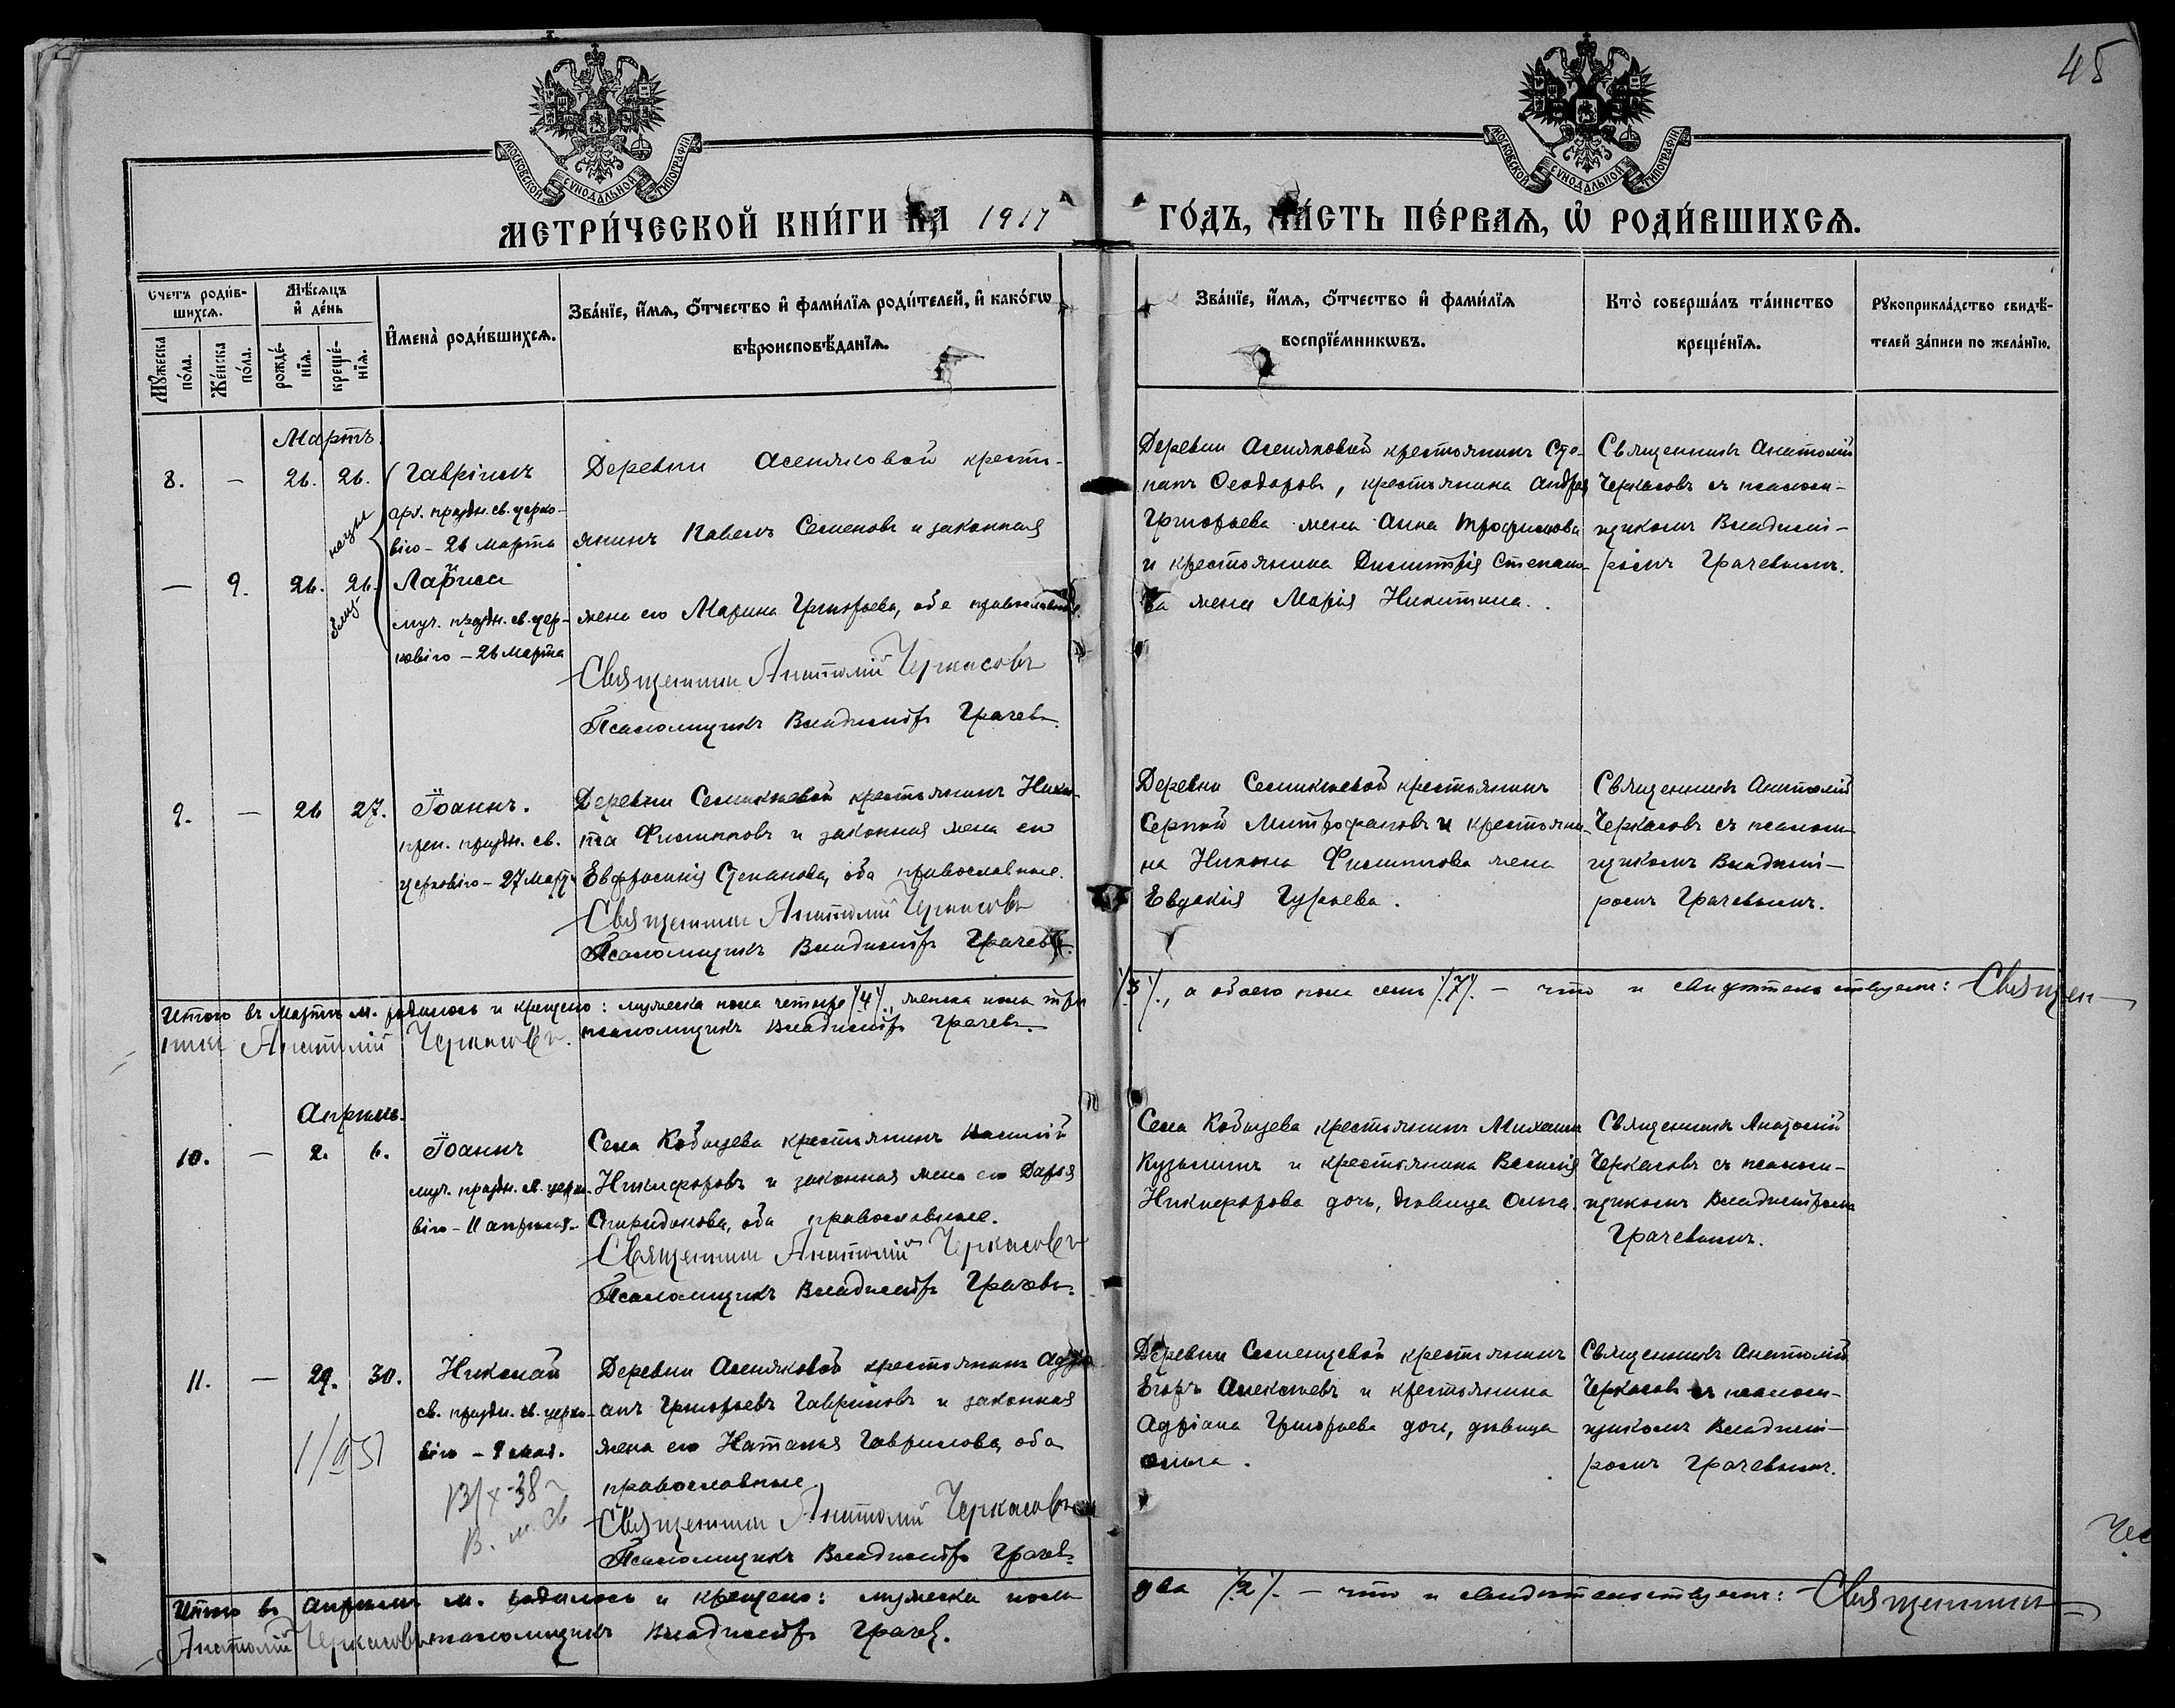 45
МОСКОВСКОЙ СѴНОДАЛЬНОЙ ТИПОГРАФІИ
МОСКОВСКОЙ СѴНОДАЛЬНОЙ ТИПОГРАФІИ
МЕТРИ́ЧЕСКОЙ КНИ́ГИ НА 1917 ГО́ДЪ, ЧА́СТЬ ПЕ́РВАЯ, Ѽ РОДИ́ВШИХСЯ.
Счетъ роди́в-
шихся.
Мꙋ́жеска
по́ла.
Же́нска
по́ла.
Мѣ́сяцъ
и҆ де́нь
рожде́-
нїя.
креще́-
нїя.
И҆мена̀ роди́вшихся.
Зва́нїе, и҆́мя, ѻ҆́тчество и҆ фами́лїя роди́телей, и҆ како́гѡ
вѣроисповѣ́данїя.
Зва́нїе, и҆́мя, ѻ҆́тчество и҆ фами́лїя
воспрїе́мникѡвъ.
Кто̀ соверша́лъ та́инство
креще́нїя.
Рꙋкоприкла́дство свидѣ́-
телей за́писи по жела́нїю.
Мартъ.
8. — 26. 26.
Гавріилъ
арх. праздн. св. церко-
вію – 26 марта
— 9. 26. 26.
Лариса
муч. праздн. св. цер-
ковію – 26 марта
Деревни Асеняковой кресть-
янинъ Павелъ Семеновъ и законная
жена его Марина Григорьева, обе православные.
Священникъ Анатолій Черкасовъ
Псаломщикъ Владиміръ Грачевъ.
Деревни Асеняковой крестьянинъ Сте-
панъ Ѳеодоровъ, крестьянина Андрея
Григорьева жена Анна Трофимова
и крестьянина Димитрія Степано-
ва жена Марія Никитина.
Священникъ Анатолій
Черкасовъ съ псаломщ-
икомъ Владимі-
ромъ Грачевымъ.
9. — 26 27.
Іоаннъ.
преп. праздн. св.
церковію – 27 март.
Деревни крестьянинъ Ники-
та Филипповъ и законная жена его
Евфросинія Степанова, оба православные.
Священникъ Анатолій Черкасовъ
Псаломщикъ Владиміръ Грачевъ.
Деревни крестьянинъ
Сергѣй Митрофановъ и крестьяни-
на Никона Филиппова жена
Евдокія Гурьева.
Священникъ Анатолій
Черкасовъ съ псалом-
щикомъ Владимі-
ромъ Грачевымъ.
Итого въ Мартѣ м. родилось и крещено: мужеска пола четыре /4/, женска пола три /3/, а обоего пола семь /7/. – что и свидѣтельствуемъ: Священ-
никъ Анатолій Черкасовъ. псаломщикъ Владиміръ Грачевъ.
Апрѣль.
10. — 2. 6.
Іоаннъ
муч. праздн. св. церко-
вію – 11 апрѣля.
Села Кобыцева крестьянинъ Василій
Никифоровъ и законная жена его Дарья
Спиридонова, оба православные.
Священникъ Анатолій Черкасовъ
Псаломщикъ Владиміръ Грачевъ.
Села Кобыцева крестьянинъ Михаилъ
Кузьминъ и крестьянина Василія
Никифорова дочь, дѣвица Ольга.
Священникъ Анатолій
Черкасовъ съ псалом-
щикомъ Владиміромъ
Грачевымъ.
11. — 29. 30.
Николай
св. праздн. св. церко-
вію – 9 мая.
13/X-38
Деревни Асеняковой крестьянинъ Адрі-
анъ Григорьевъ Гавриловъ и законная
жена его Наталья Гаврилова, оба
православные.
Священникъ Анатолій Черкасовъ
Псаломщикъ Владиміръ Грачевъ.
Деревни Семенцевой крестьянинъ
Егоръ Алексѣевъ и крестьянина
Адріана Григорьева дочь, дѣвица
Ольга.
Священникъ Анатолій
Черкасовъ съ псалом-
щикомъ Владимі-
ромъ Грачевымъ.
Итого въ Апрѣлѣ м. родилось и крещено: мужеска пола два /2/. – что и свидѣтельствуемъ: Священникъ
Анатолій Черкасовъ псаломщикъ Владиміръ Грачев.